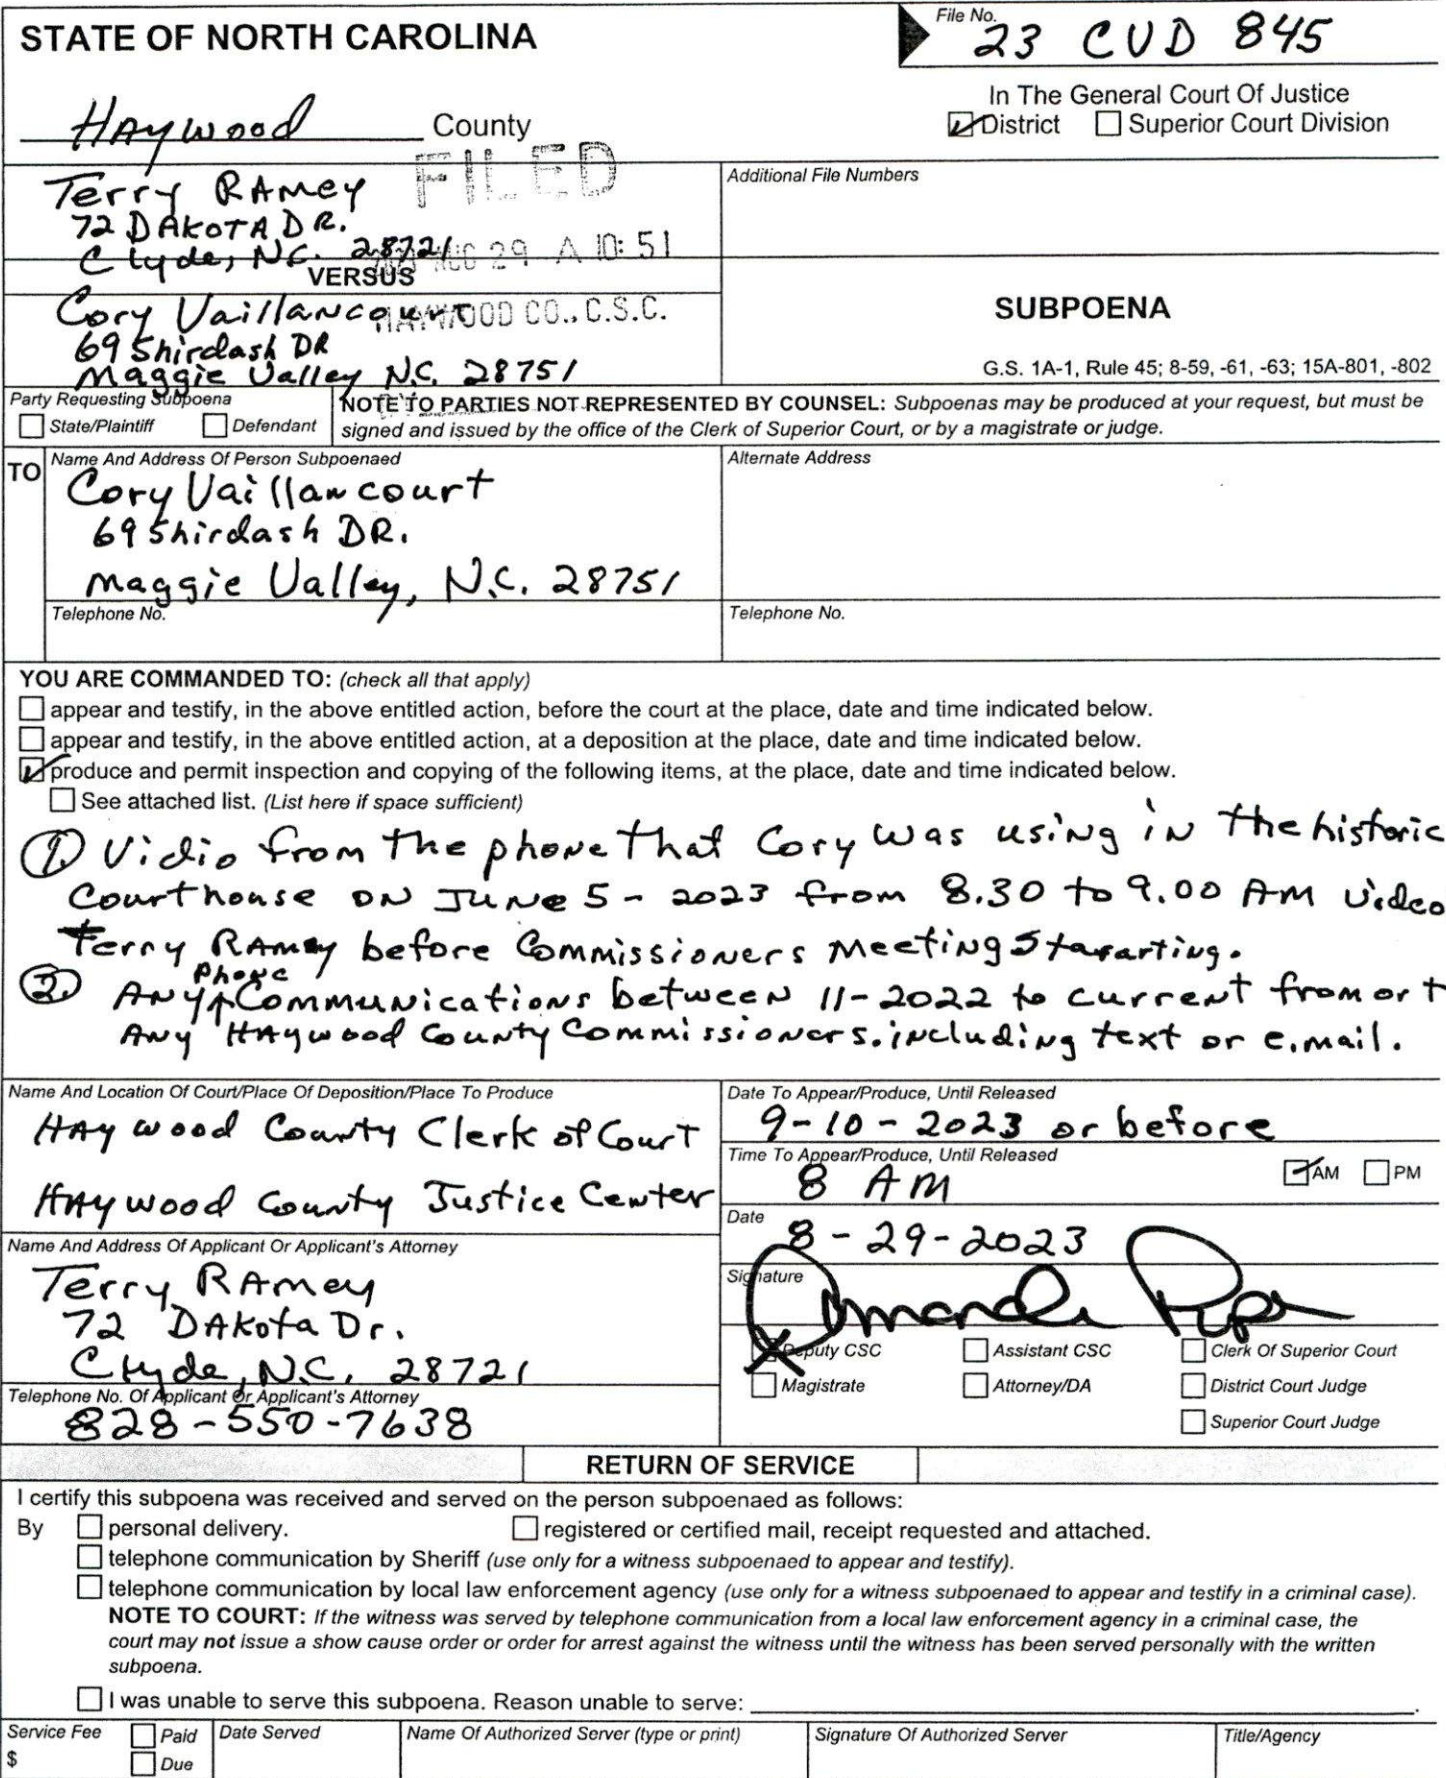 STATE OF NORTH CAROLINA
File No.
23 CVD 845
In The General Court Of Justice
District Superior Court Division
HAywood County
FILED
Terry RAmey
72 DAKOTA DR.
Clyde, N.C. 28721
AUG 29 A 10: 51
VERSUS
HAYWOOD CO., C.S.C.
Cory Vaillancourt
69 Shirdash DR
Maggie Valley N.C. 28751
Additional File Numbers
SUBPOENA
G.S. 1A-1, Rule 45; 8-59, -61, -63; 15A-801, -802
Party Requesting Subpoena
State/Plaintiff Defendant
NOTE TO PARTIES NOT REPRESENTED BY COUNSEL: Subpoenas may be produced at your request, but must be
signed and issued by the office of the Clerk of Superior Court, or by a magistrate or judge.
TO
Name And Address Of Person Subpoenaed
Cory Vaillancourt
69 Shirdash DR.
Maggie Valley, N.C. 28751
Telephone No.
Alternate Address
Telephone No.
YOU ARE COMMANDED TO: (check all that apply)
appear and testify, in the above entitled action, before the court at the place, date and time indicated below.
appear and testify, in the above entitled action, at a deposition at the place, date and time indicated below.
produce and permit inspection and copying of the following items, at the place, date and time indicated below.
See attached list. (List here if space sufficient)
1. Vidio from the phone that Cory was using in the historic
Courthouse on June 5 - 2023 from 8.30 to 9.00 AM video
Terry RAmey before Commissioners Meeting Stararting.
2. ANY phone Communications between 11-2022 to current from or t
ANY HAywood County Commissioners. including text or e.mail.
Name And Location Of Court/Place Of Deposition/Place To Produce
HAywood County Clerk of Court
HAywood County Justice Center
Date To Appear/Produce, Until Released
9-10-2023 or before
Time To Appear/Produce, Until Released
8 AM
AM PM
Date
8-29-2023
Name And Address Of Applicant Or Applicant's Attorney
Terry RAmey
72 DAKota Dr.
Clyde, N.C. 28721
Signature
Deputy CSC Assistant CSC Clerk Of Superior Court
Magistrate Attorney/DA District Court Judge
Superior Court Judge
Telephone No. Of Applicant Or Applicant's Attorney
828-550-7638
RETURN OF SERVICE
I certify this subpoena was received and served on the person subpoenaed as follows:
By personal delivery. registered or certified mail, receipt requested and attached.
telephone communication by Sheriff (use only for a witness subpoenaed to appear and testify).
telephone communication by local law enforcement agency (use only for a witness subpoenaed to appear and testify in a criminal case).
NOTE TO COURT: If the witness was served by telephone communication from a local law enforcement agency in a criminal case, the
court may not issue a show cause order or order for arrest against the witness until the witness has been served personally with the written
subpoena.
I was unable to serve this subpoena. Reason unable to serve:
Service Fee Paid
$ Due
Date Served
Name Of Authorized Server (type or print)
Signature Of Authorized Server
Title/Agency